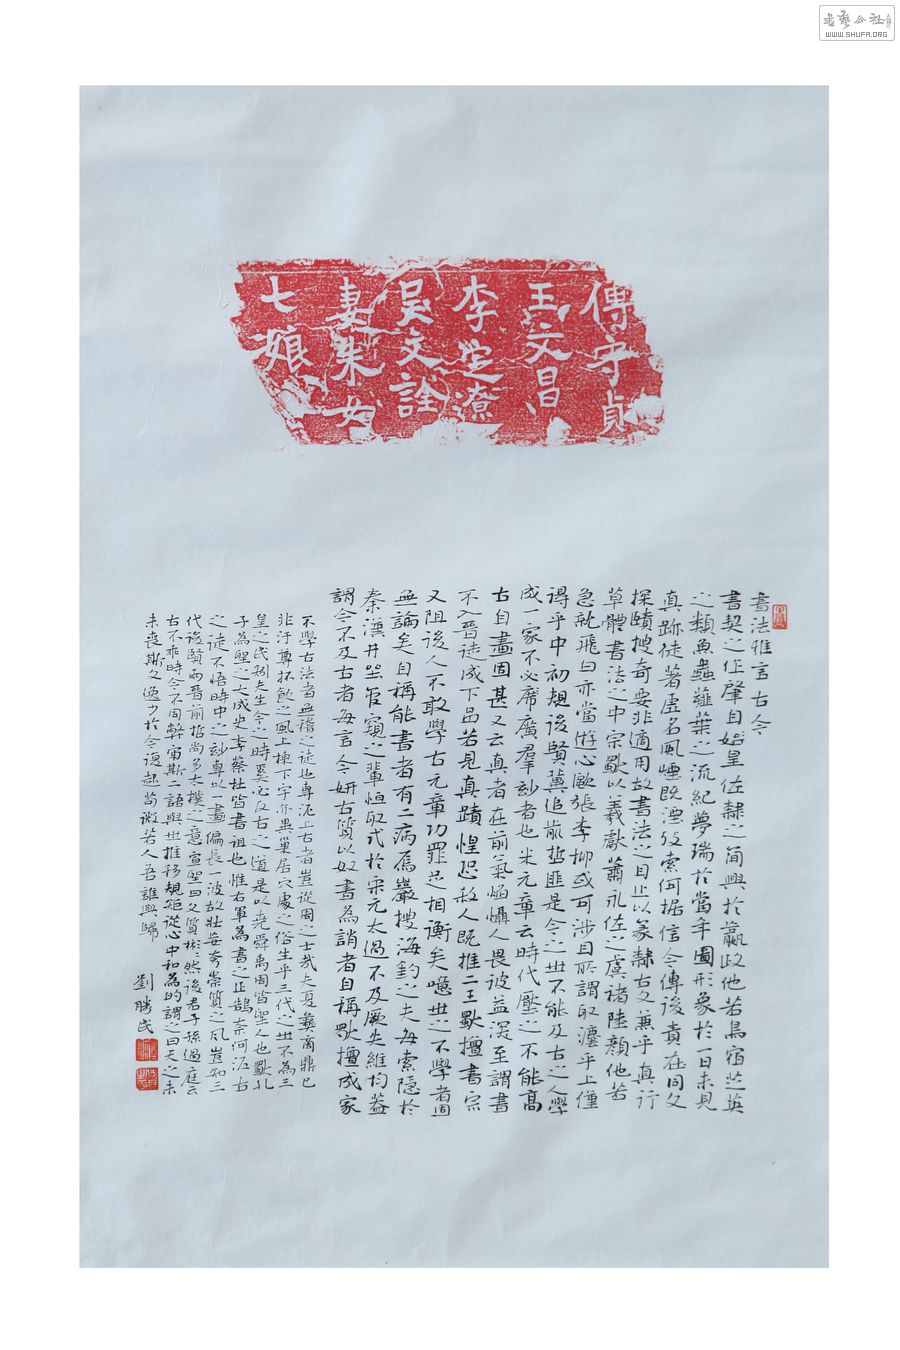 書法公社
WWW.SHUFA.ORG
傅守貞
王文昌
李定遼
吴文詮
妻朱女
七娘
書法雅言 古今
書契之作肇自始皇佐隸之簡興於嬴政他若鳥宿芝英
之類魚蟲薤葉之流紀夢瑞於當年圖形象於一日未見
真跡徒著虛名風煙既湮攷索何據信今傳後責在同文
探賾搜奇要非適用故書法之目止以篆隸古文兼乎真行
草體書法之中宗獨以羲獻蕭永佐之虞褚陸顏他若
急就飛白亦當遊心歐張李柳或可涉目所謂取瀍乎上僅
得乎中初規後賢冀追前哲匪是今之世不能及古之人學
成一家不必廣羣妙者也米元章云時代壓之不能高
古自畫固甚又云真者在前氣焰懾人畏彼益深至謂書
不入晉徒成下品若見真蹟惶恐殺人既推二王獨擅書宗
又阻後人不敢學古元章功罪足相衡矣噫世之不學者固
無論矣自稱能書者有二病焉巖搜海釣之夫每索隱於
秦漢井坐管窺之輩恒取式於宋元太過不及厥失維均蓋
謂今不及古者每言今妍古質以奴書為誚者自稱獨擅成家
不學古法者無稽之徒也專泥上古者豈從周之士哉夫夏彝商鼎已
非汙尊抔飲之風上棟下宇亦異巢居穴處之俗生乎三代之世不為三
皇之民矧夫生今之時奚必反古之道是以堯舜禹周皆聖人也獨孔
子為聖之大成史李蔡杜皆書祖也惟右軍為書之正鵠奈何泥古
之徒不悟時中之妙專以一畫偏長一波故壯妄誇崇質之風豈知三
代後賢兩晉前哲尚多太樸之意宣聖曰文質彬彬然後君子孫過庭云
古不乖時今不同弊審斯二語與世推移規矩從心中和為的謂之曰天之未
未喪斯文逸少於今復起苟微若人吾誰與歸
劉勝民